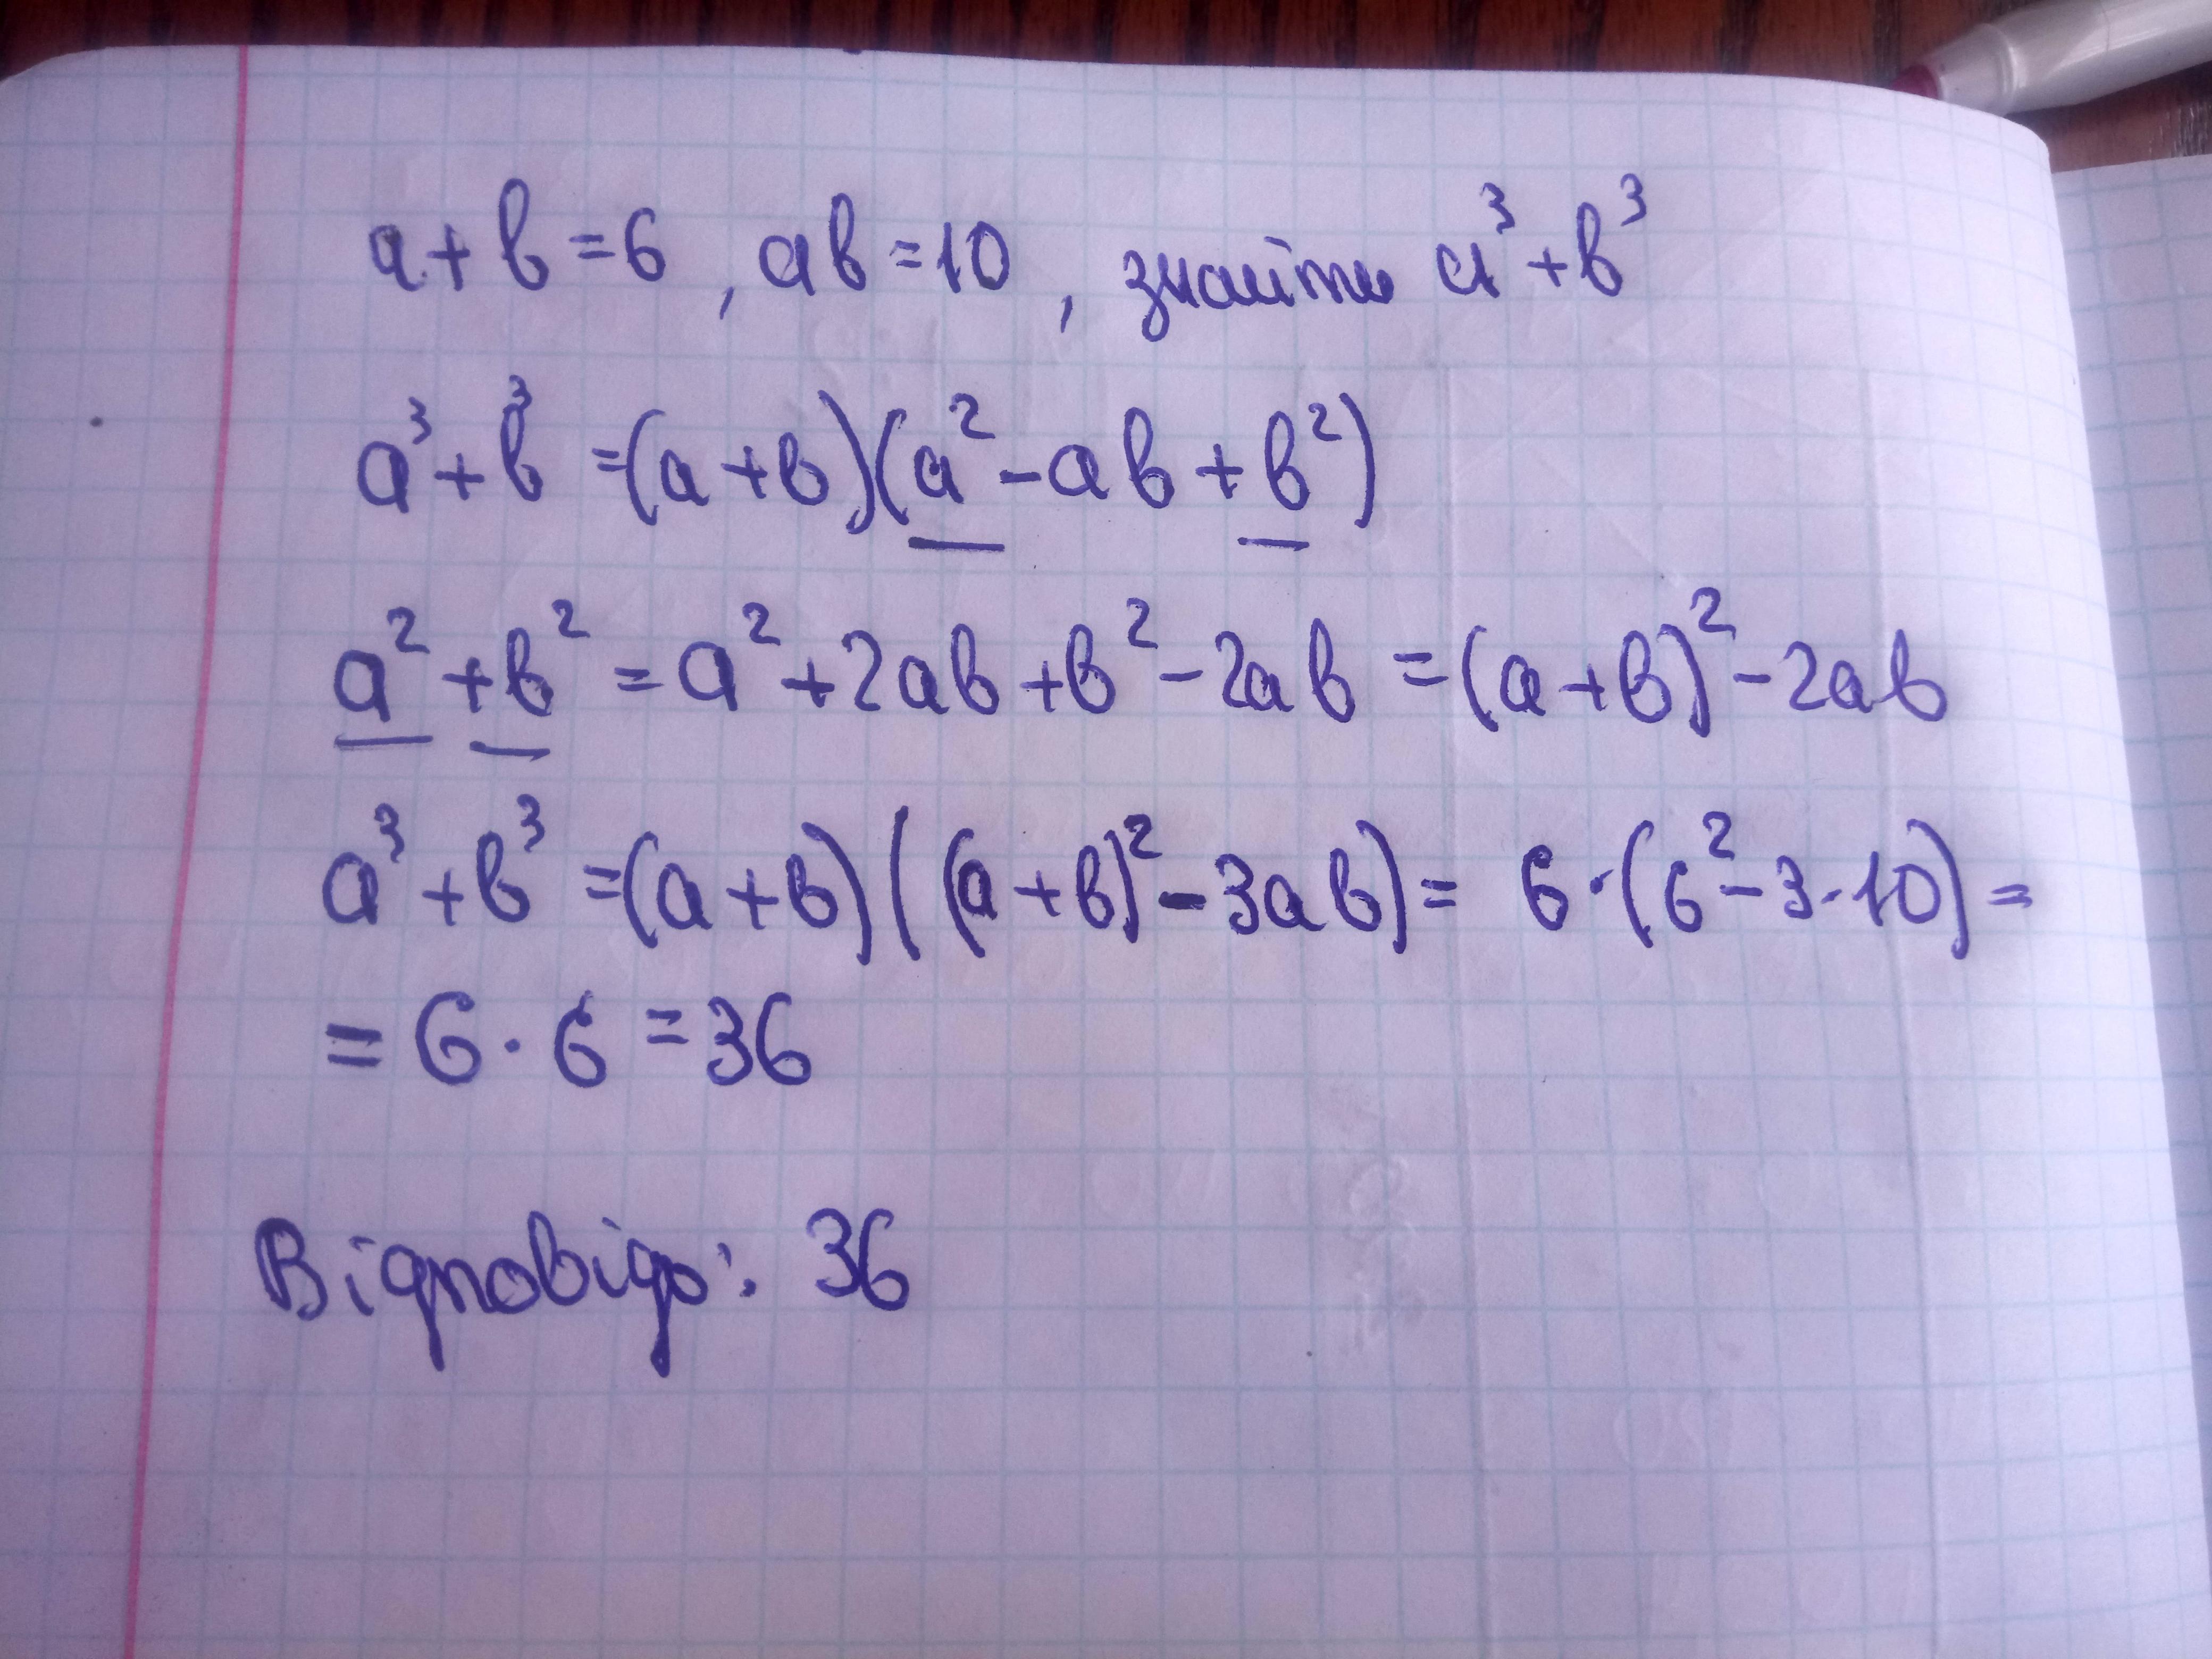 a + b = 6, ab = 10, знайти a³ + b³
a³ + b³ = (a + b)(a² - ab + b²)
a² + b² = a² + 2ab + b² - 2ab = (a + b)² - 2ab
a³ + b³ = (a + b)((a + b)² - 3ab) = 6 · (6² - 3 · 10) =
= 6 · 6 = 36
Відповідь: 36